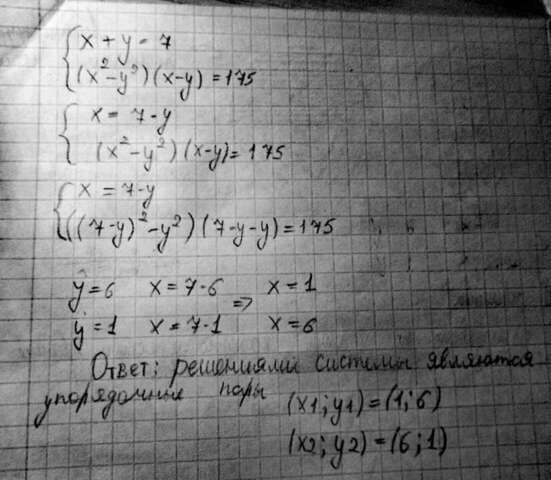 x + y = 7
(x² - y²) (x - y) = 175
x = 7 - y
(x² - y²) (x - y) = 175
x = 7 - y
((7 - y)² - y²) (7 - y - y) = 175
y = 6 x = 7 - 6 => x = 1
y = 1 x = 7 - 1 x = 6
Ответ: решениями системы являются
упорядочные пары (x1; y1) = (1; 6)
(x2; y2) = (6; 1)